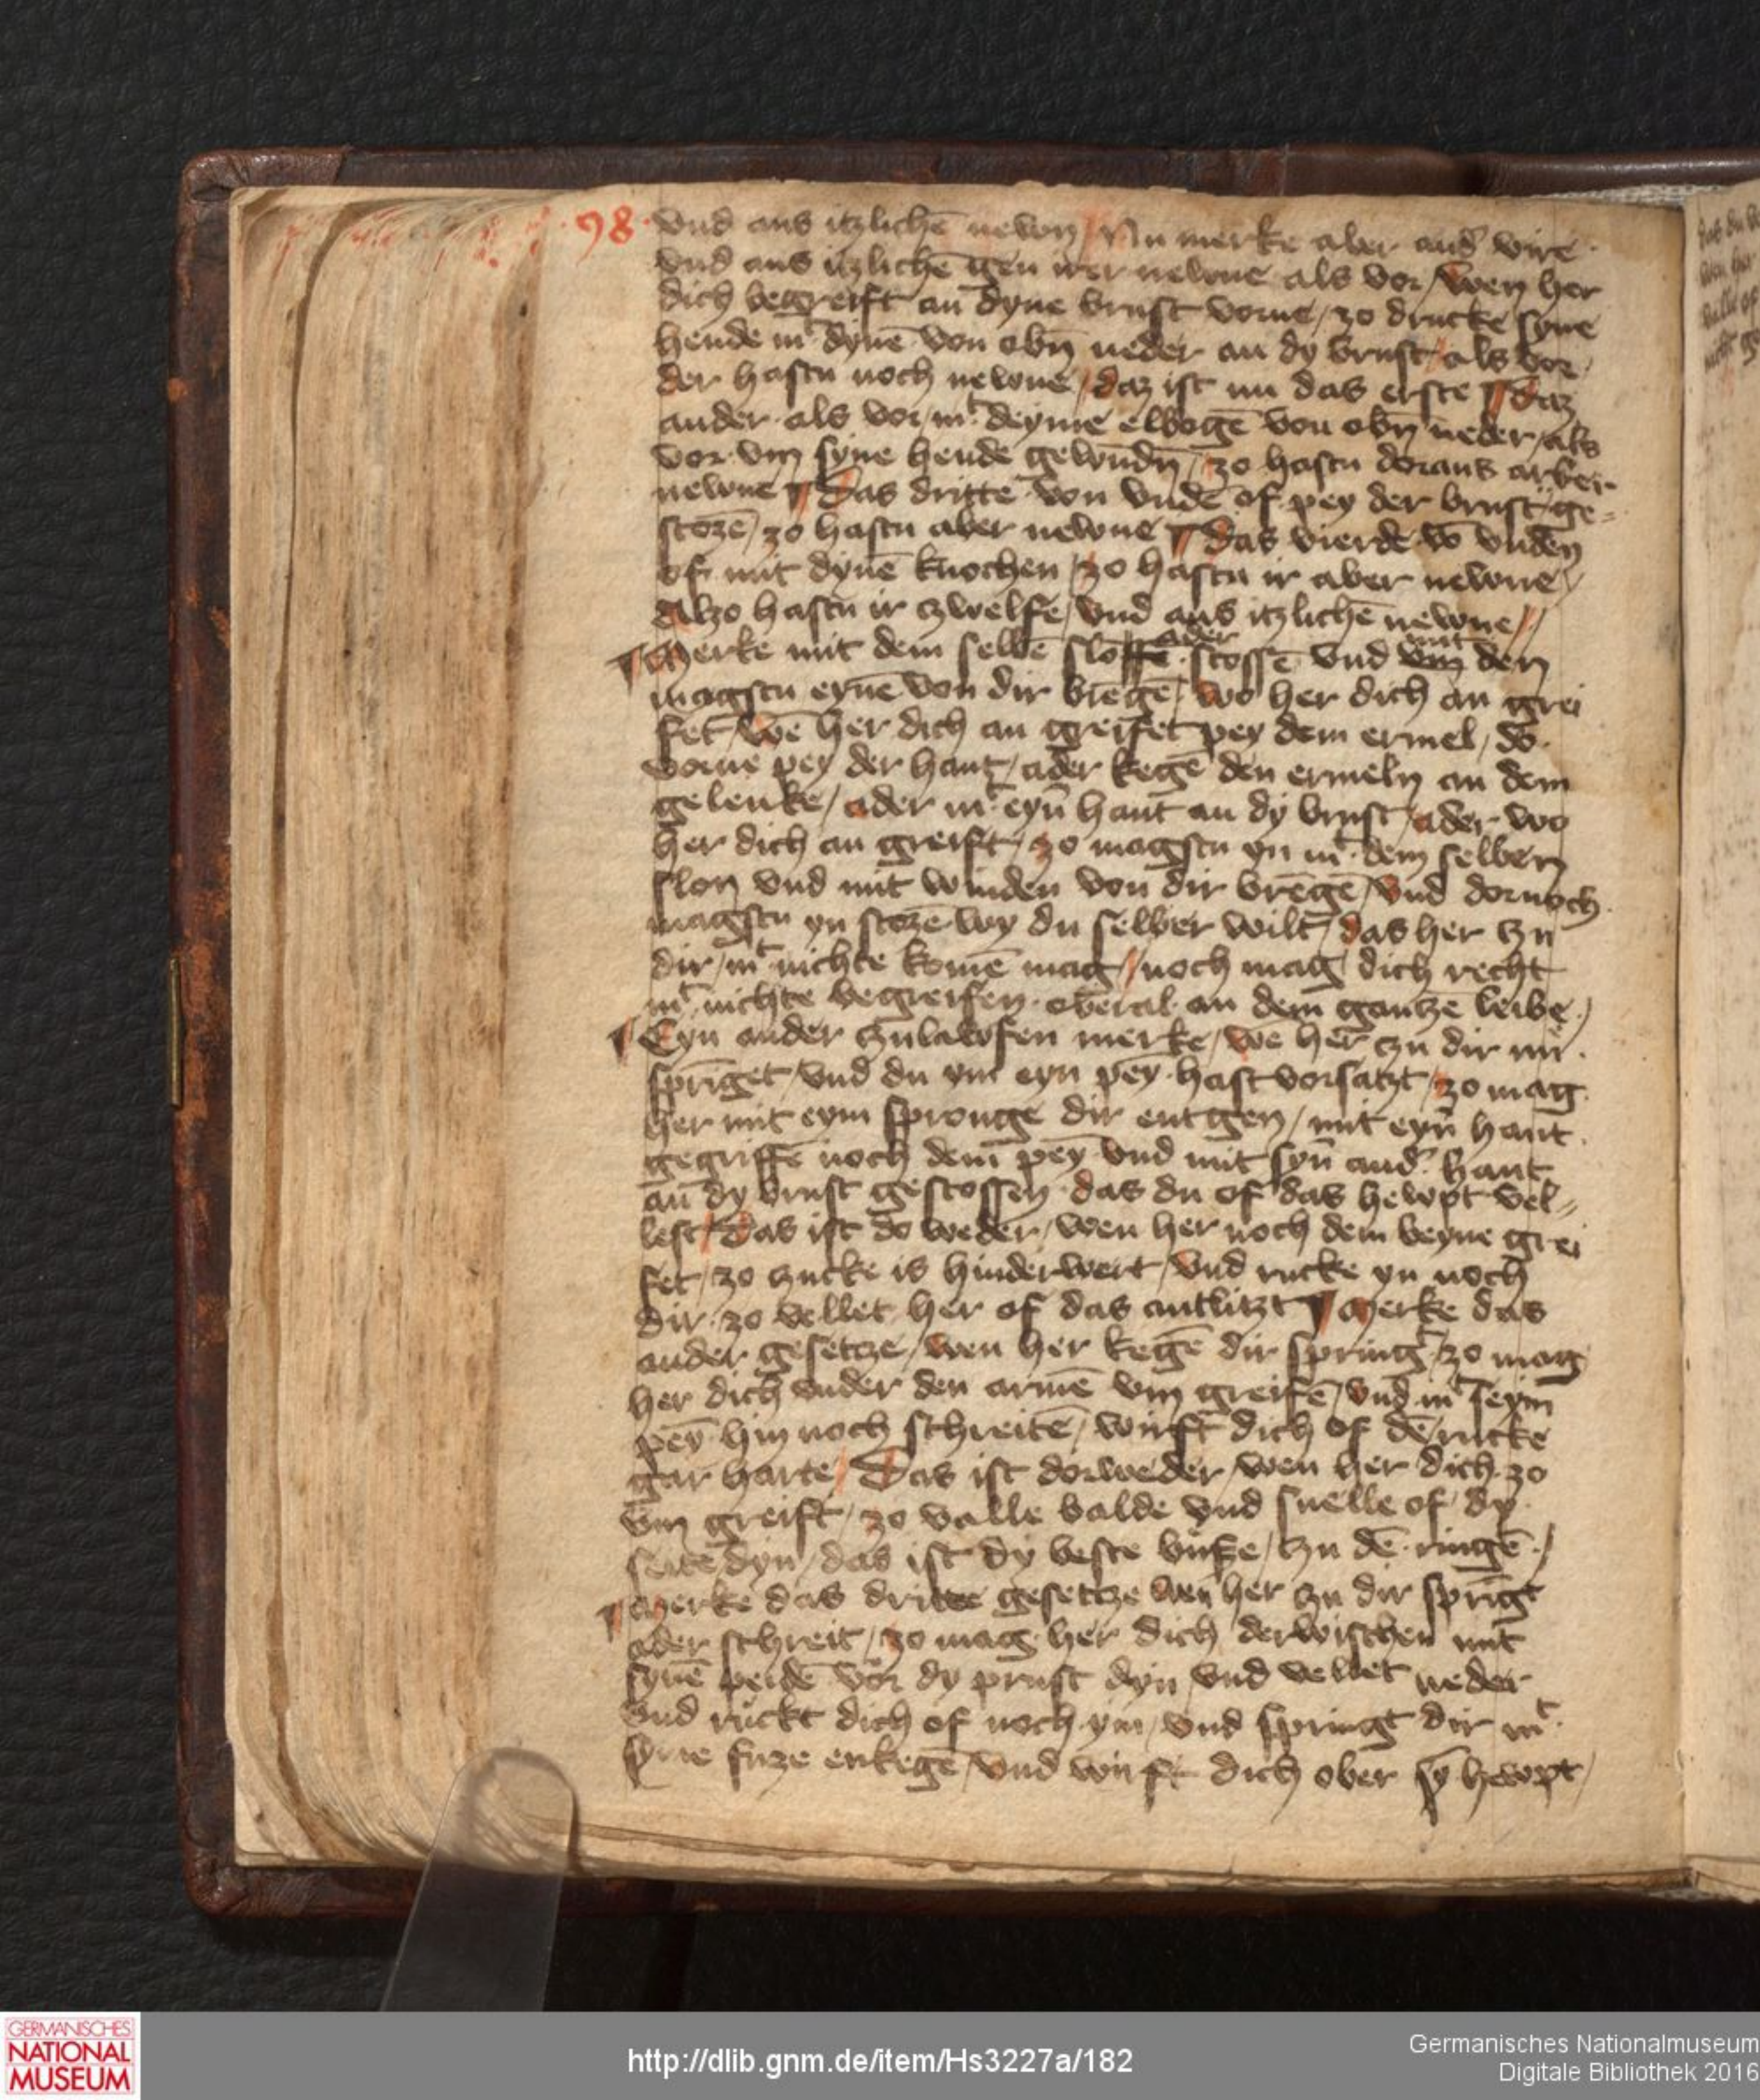 98
vnd aus itzlichē newn / Nu merke aber and' vire
vnd aus itzlichē gen irer newne als vor / wen her
dich begreift an dyne brust vorne / zo drucke syne
hende mᵗ dynē von obn̄ neder an dy brust / als vor
der hastu noch newne / daz ist nu das erste ¶ Daz
ander als vor / mᵗ deyme elbogē von obn̄ neder / als
vor vm syne hende gewūdn̄ / zo hastu doraus aber
newne ¶ Das dritte von vndē of pey der brust ge=
stozē / zo hastu aber newne ¶ Das vierde vō vnden
of mit dynē knochen / zo hastu ir aber newne /
Alzo hastu ir czwelfe / vnd aus itzlichē newne //
¶ Merke mit dem selbē slo ader stossē vnd mit den
magstu eynē von dir brēgē / wo her dich an grei
fet / wē her dich an greifet pey dem ermel / do
vorne pey der hant / ader kegē den ermeln an dem
gelenke / ader mᵗ eyn̄ hant an dy brust / ader wo
her dich an greift / zo magstu yn mᵗ dem selben
slon vnd mit winden von dir brēgē / vnd dornoch
magstu yn stozē wy du selber wilt / das her czu
dir / mᵗ nichte komē mag // noch mag dich recht
mᵗ nichte begreifen oberal an dem gantzē leibe /
¶ Eyn ander czulawfen merke / wē her czu dir nu
sprīget / vnd du ym eyn pey hast vorsatzt / zo mag
her mit eym spronge dir entgen / mit eyn̄ hant
gegriffē noch dem pey vnd mit syn̄ and' hant
an dy brust gestossen das du of das hewpt vel=
lest / Das ist do weder / wen her noch dem beyne grei
fet / zo czucke is hinderwert / vnd rucke yn noch
dir zo vellet her of das antlitzt ¶ Merke das
ander gesetcze / wen her kegē dir springᵗ / zo mag
her dich vnder den armē vm greifē / vnd mᵗ seym
pey hin noch schreitē / wirft dich of dē rucke
gar harte / Das ist dorweder / wen her dich zo
vm greift / zo valle balde vnd snelle of dy
seite dyn / das ist dy beste buße / czu dē ringē /
¶ Merke das dritte gesetcze wen her czu dir sprīgt
ader schreit / zo mag her dich derwischen mit
synē peidē vor dy prust dyn vnd vellet neder
vnd ruckt dich of noch ym / vnd springt dir mᵗ
syne fuze enkegē / vnd wirft dich ober sȳ hewpt /
GERMANISCHES
NATIONAL
MUSEUM
http://dlib.gnm.de/item/Hs3227a/182
Germanisches Nationalmuseum
Digitale Bibliothek 2016